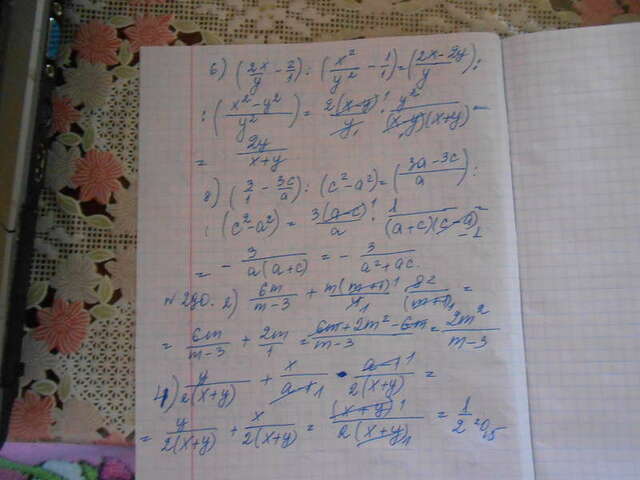 6) (2x/y - 2/1) : (x²/y² - 1/1) = (2x-2y/y) :
: (x²-y²/y²) = 2(x-y)¹/y₁ · y²/(x-y)(x+y) =
= 2y/x+y
8) (3/1 - 3c/a) : (c²-a²) = (3a-3c/a) :
: (c²-a²) = 3(a-c)¹/a · 1/(a+c)(c-a)₋₁ =
= - 3/a(a+c) = - 3/a²+ac.
N 290. 2) 6m/m-3 + m(m+1)¹/4₁ · 8²/(m+1)₁ =
= 6m/m-3 + 2m/1 = 6m+2m²-6m/m-3 = 2m²/m-3
4) y/2(x+y) + x/a-1₁ · a-1¹/2(x+y) =
= y/2(x+y) + x/2(x+y) = (x+y)¹/2(x+y)₁ = 1/2 = 0,5